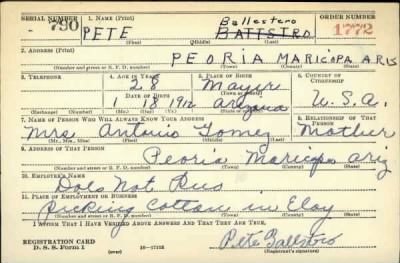 SERIAL NUMBER 1. NAME (Print) ORDER NUMBER
790 PETE Ballestero BATTSTRO 1772
(First) (Middle) (Last)
2. ADDRESS (Print)
PEORIA MARICOPA ARIS
(Number and street or R. F. D. number) (Town) (County) (State)
3. TELEPHONE 4. AGE IN YEARS 5. PLACE OF BIRTH 6. COUNTRY OF CITIZENSHIP
28 Mayer
DATE OF BIRTH (Town or county)
1 18 1912 Arizona U.S.A.
(Exchange) (Number) (Mo.) (Day) (Yr.) (State or country)
7. NAME OF PERSON WHO WILL ALWAYS KNOW YOUR ADDRESS 8. RELATIONSHIP OF THAT PERSON
Mrs Antonio Gomez Mother
(Mr., Mrs., Miss) (First) (Middle) (Last)
9. ADDRESS OF THAT PERSON
Peoria Maricopa Ariz
(Number and street or R. F. D. number) (Town) (County) (State)
10. EMPLOYER'S NAME
Does Not
11. PLACE OF EMPLOYMENT OR BUSINESS
Picking Cotton in Eloy
(Number and street or R. F. D. number) (Town) (County) (State)
I AFFIRM THAT I HAVE VERIFIED ABOVE ANSWERS AND THAT THEY ARE TRUE.
REGISTRATION CARD Pete
D. S. S. Form 1 16-17105 (Registrant's signature)